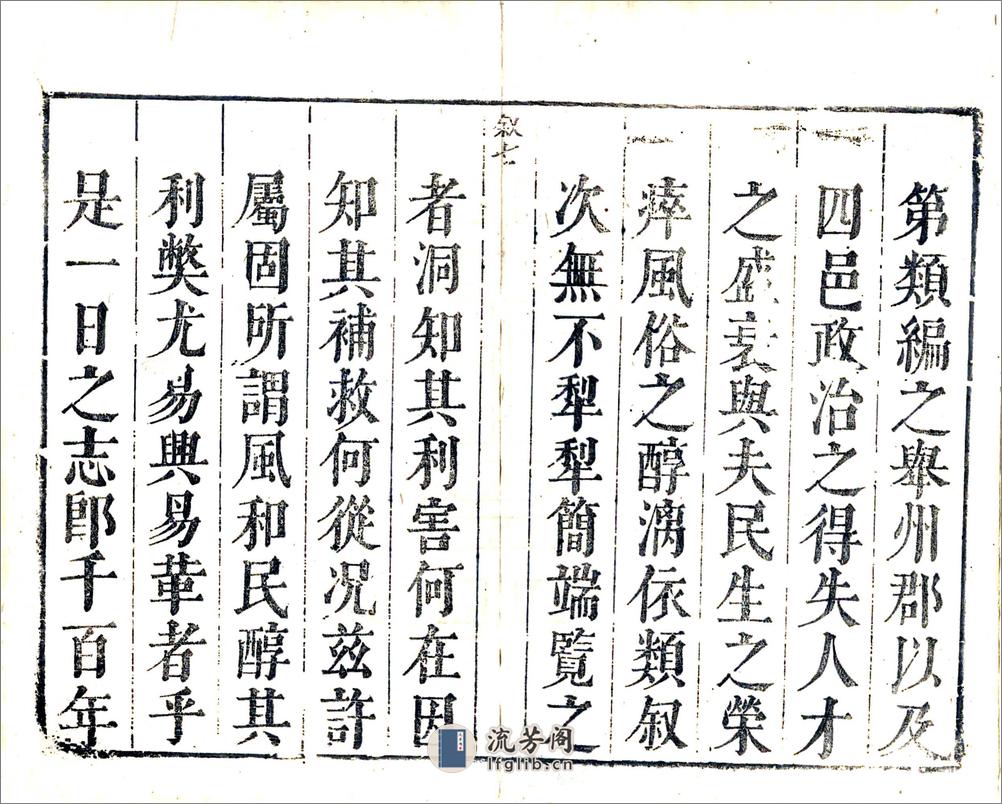 第類編之舉州郡以及
四邑政治之得失人才
之盛衰與夫民生之榮
瘁風俗之醇漓依類叙
次無不犁犁簡端覽之
叙七
者洞知其利害何在因
知其補救何從况兹許
屬固所謂風和民醇其
利弊尤易興易革者乎
是一日之志郎千百年
流芳阁
lfglib.cn